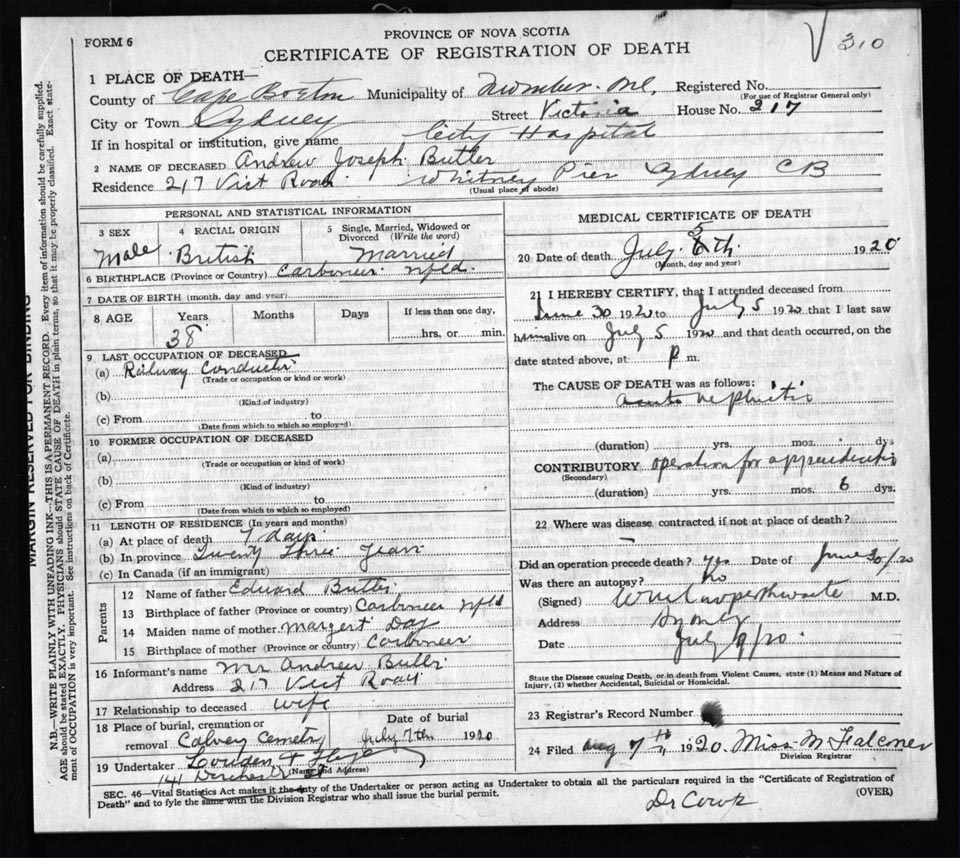 FORM 6
PROVINCE OF NOVA SCOTIA
CERTIFICATE OF REGISTRATION OF DEATH
310
MARGIN RESERVED FOR BINDING
N.B.—WRITE PLAINLY WITH UNFADING INK—THIS IS A PERMANENT RECORD. Every item of information should be carefully supplied.
AGE should be stated EXACTLY. PHYSICIANS should STATE CAUSE OF DEATH in plain terms, so that it may be properly classified. Exact state-
ment of OCCUPATION is very important. See instructions on back of Certificate.
1 PLACE OF DEATH—
County of Cape Breton Municipality of Number One, Registered No.
(For use of Registrar General only)
City or Town Sydney Street Victoria House No. 217
If in hospital or institution, give name City Hospital
2 NAME OF DECEASED Andrew Joseph Butler
Residence 217 Vict Road Whitney Pier Sydney CB
(Usual place of abode)
PERSONAL AND STATISTICAL INFORMATION
3 SEX 4 RACIAL ORIGIN 5 Single, Married, Widowed or
Divorced (Write the word)
Male British Married
6 BIRTHPLACE (Province or Country) Carboneer Nfld.
7 DATE OF BIRTH (month, day and year)
8 AGE Years Months Days If less than one day,
38 hrs. or min.
9 LAST OCCUPATION OF DECEASED
(a) Railway Conductor
(Trade or occupation or kind or work)
(b)
(Kind of industry)
(c) From to
(Date from which to which so employed)
10 FORMER OCCUPATION OF DECEASED
(a)
(Trade or occupation or kind of work)
(b)
(Kind of industry)
(c) From to
(Date from which to which so employed)
11 LENGTH OF RESIDENCE (In years and months)
(a) At place of death 7 days
(b) In province Twenty three Years
(c) In Canada (if an immigrant)
Parents
12 Name of father Edward Butler
13 Birthplace of father (Province or country) Carboneer Nfld
14 Maiden name of mother Margert Day
15 Birthplace of mother (Province or country) Carboneer
16 Informant's name Mrs Andrew Butler
Address 217 Vict Road
17 Relationship to deceased Wife
18 Place of burial, cremation or Date of burial
removal Calvey Cemetry July 7th 1920
19 Undertaker Louden +
(Name and Address)
141 Dorchester St
MEDICAL CERTIFICATE OF DEATH
5
20 Date of death July 6th 1920
(Month, day and year)
21 I HEREBY CERTIFY, that I attended deceased from
June 30 1920 to July 5 1920 that I last saw
him alive on July 5 1920 and that death occurred, on the
date stated above, at P m.
The CAUSE OF DEATH was as follows:
acute nephritis
(duration) yrs. mos. dys
CONTRIBUTORY operation for appendicitis
(Secondary)
(duration) yrs. mos. 6 dys.
22 Where was disease contracted if not at place of death?
—
Did an operation precede death? Yes Date of June 30/20
Was there an autopsy? no
(Signed) M.D.
Address Sydney
Date July 9/20
State the Disease causing Death, or in death from Violent Causes, state (1) Means and Nature of
Injury, (2) whether Accidental, Suicidal or Homicidal.
23 Registrar's Record Number
24 Filed Aug 7th 1920. Miss M Falconer
Division Registrar
SEC. 46—Vital Statistics Act makes it the duty of the Undertaker or person acting as Undertaker to obtain all the particulars required in the "Certificate of Registration of
Death" and to fyle the same with the Division Registrar who shall issue the burial permit. (OVER)
Dr